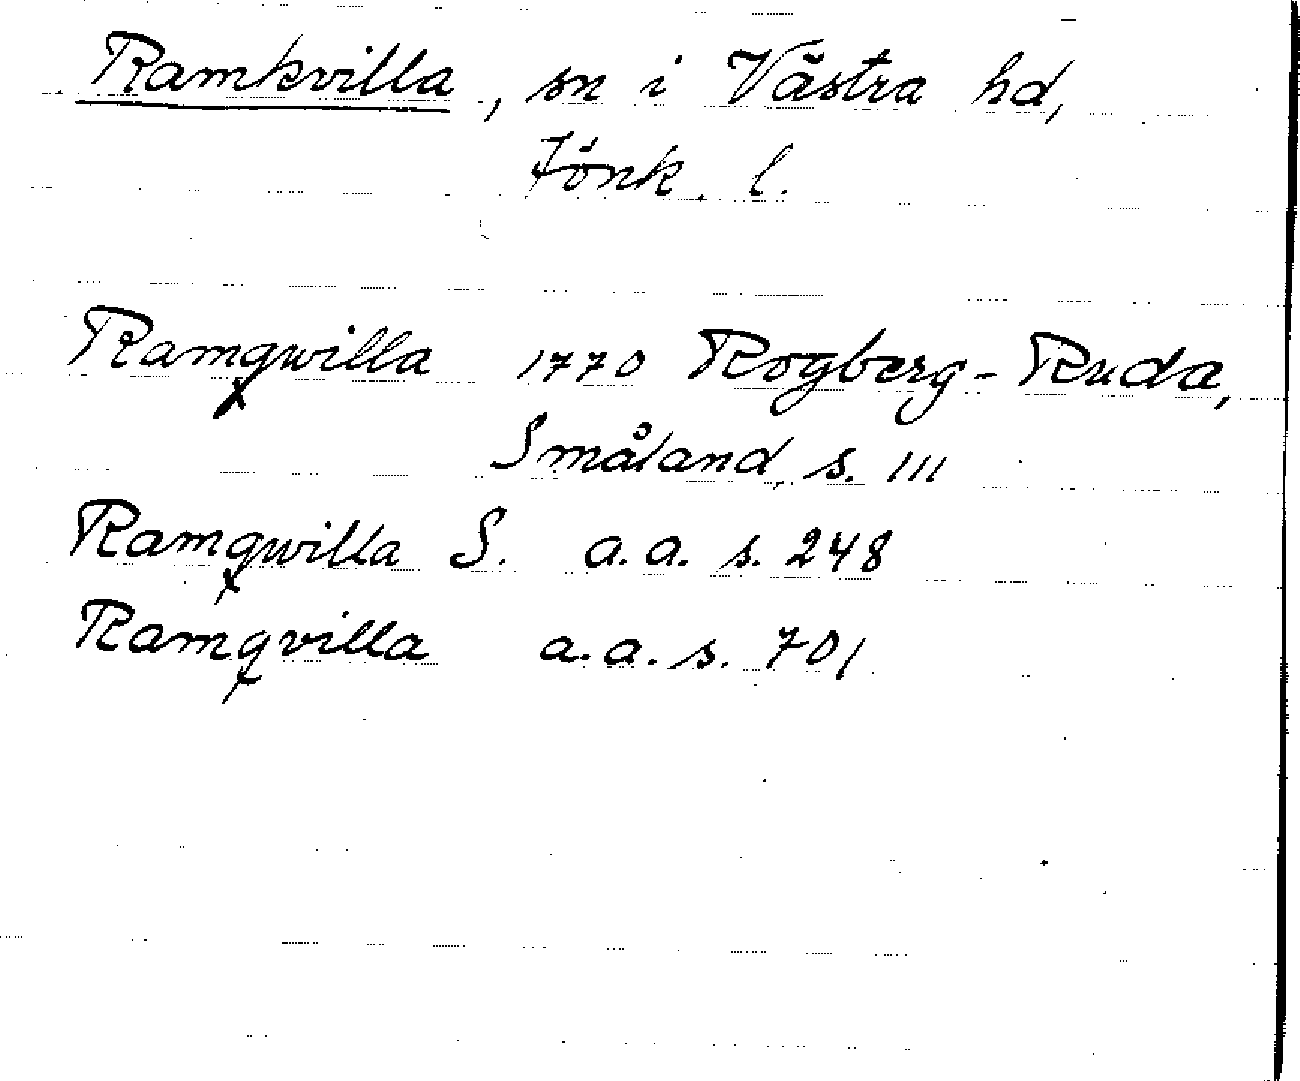 Ramkvilla, sn i Västra hd,
Jönk. l.
Ramqwilla 1770 Rogberg-Ruda,
Småland, s. 111
Ramqwilla S. a.a. s. 248
Ramqvilla a.a. s. 701